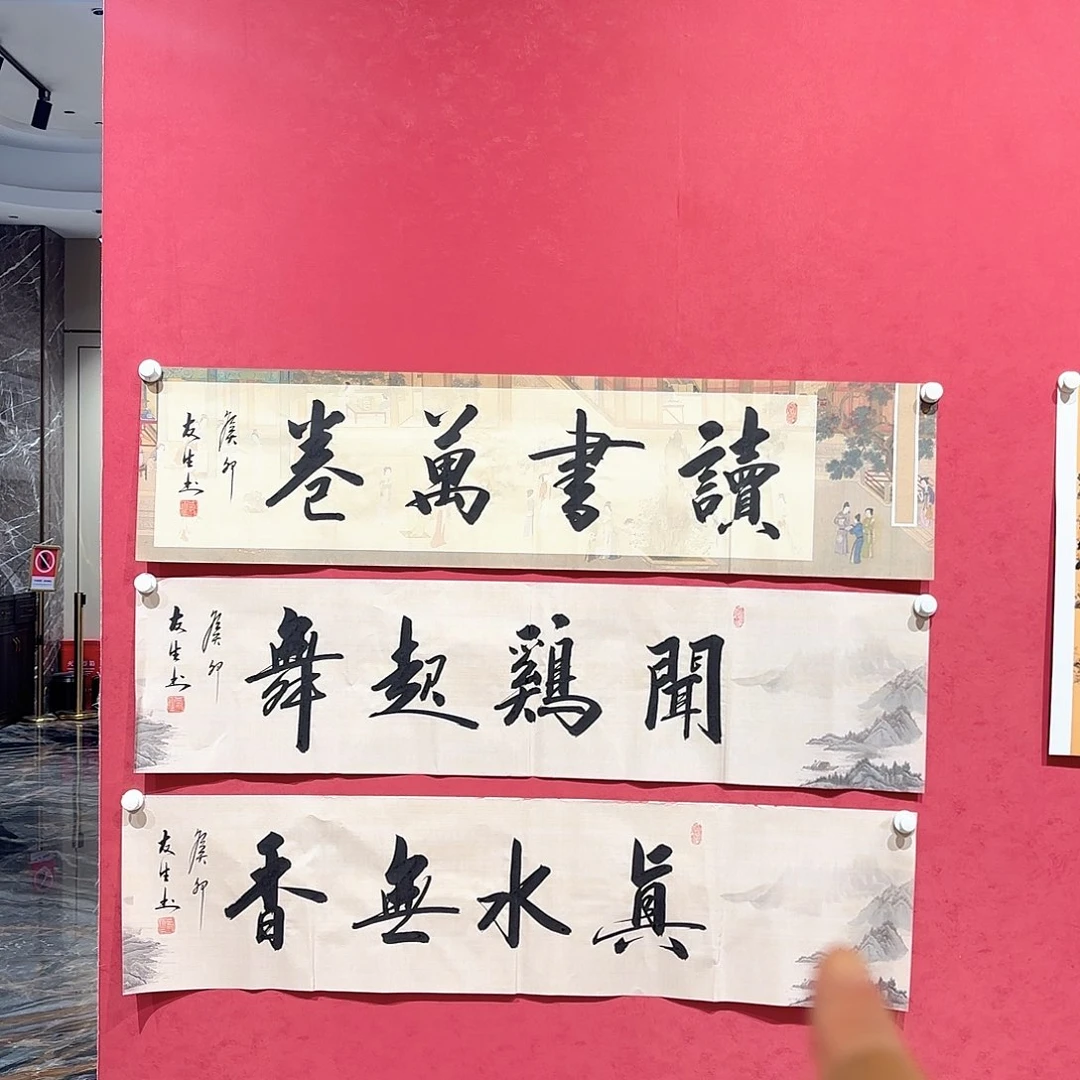 讀書萬卷
癸卯
友生书
聞鷄起舞
癸卯
友生书
真水無香
癸卯
友生书